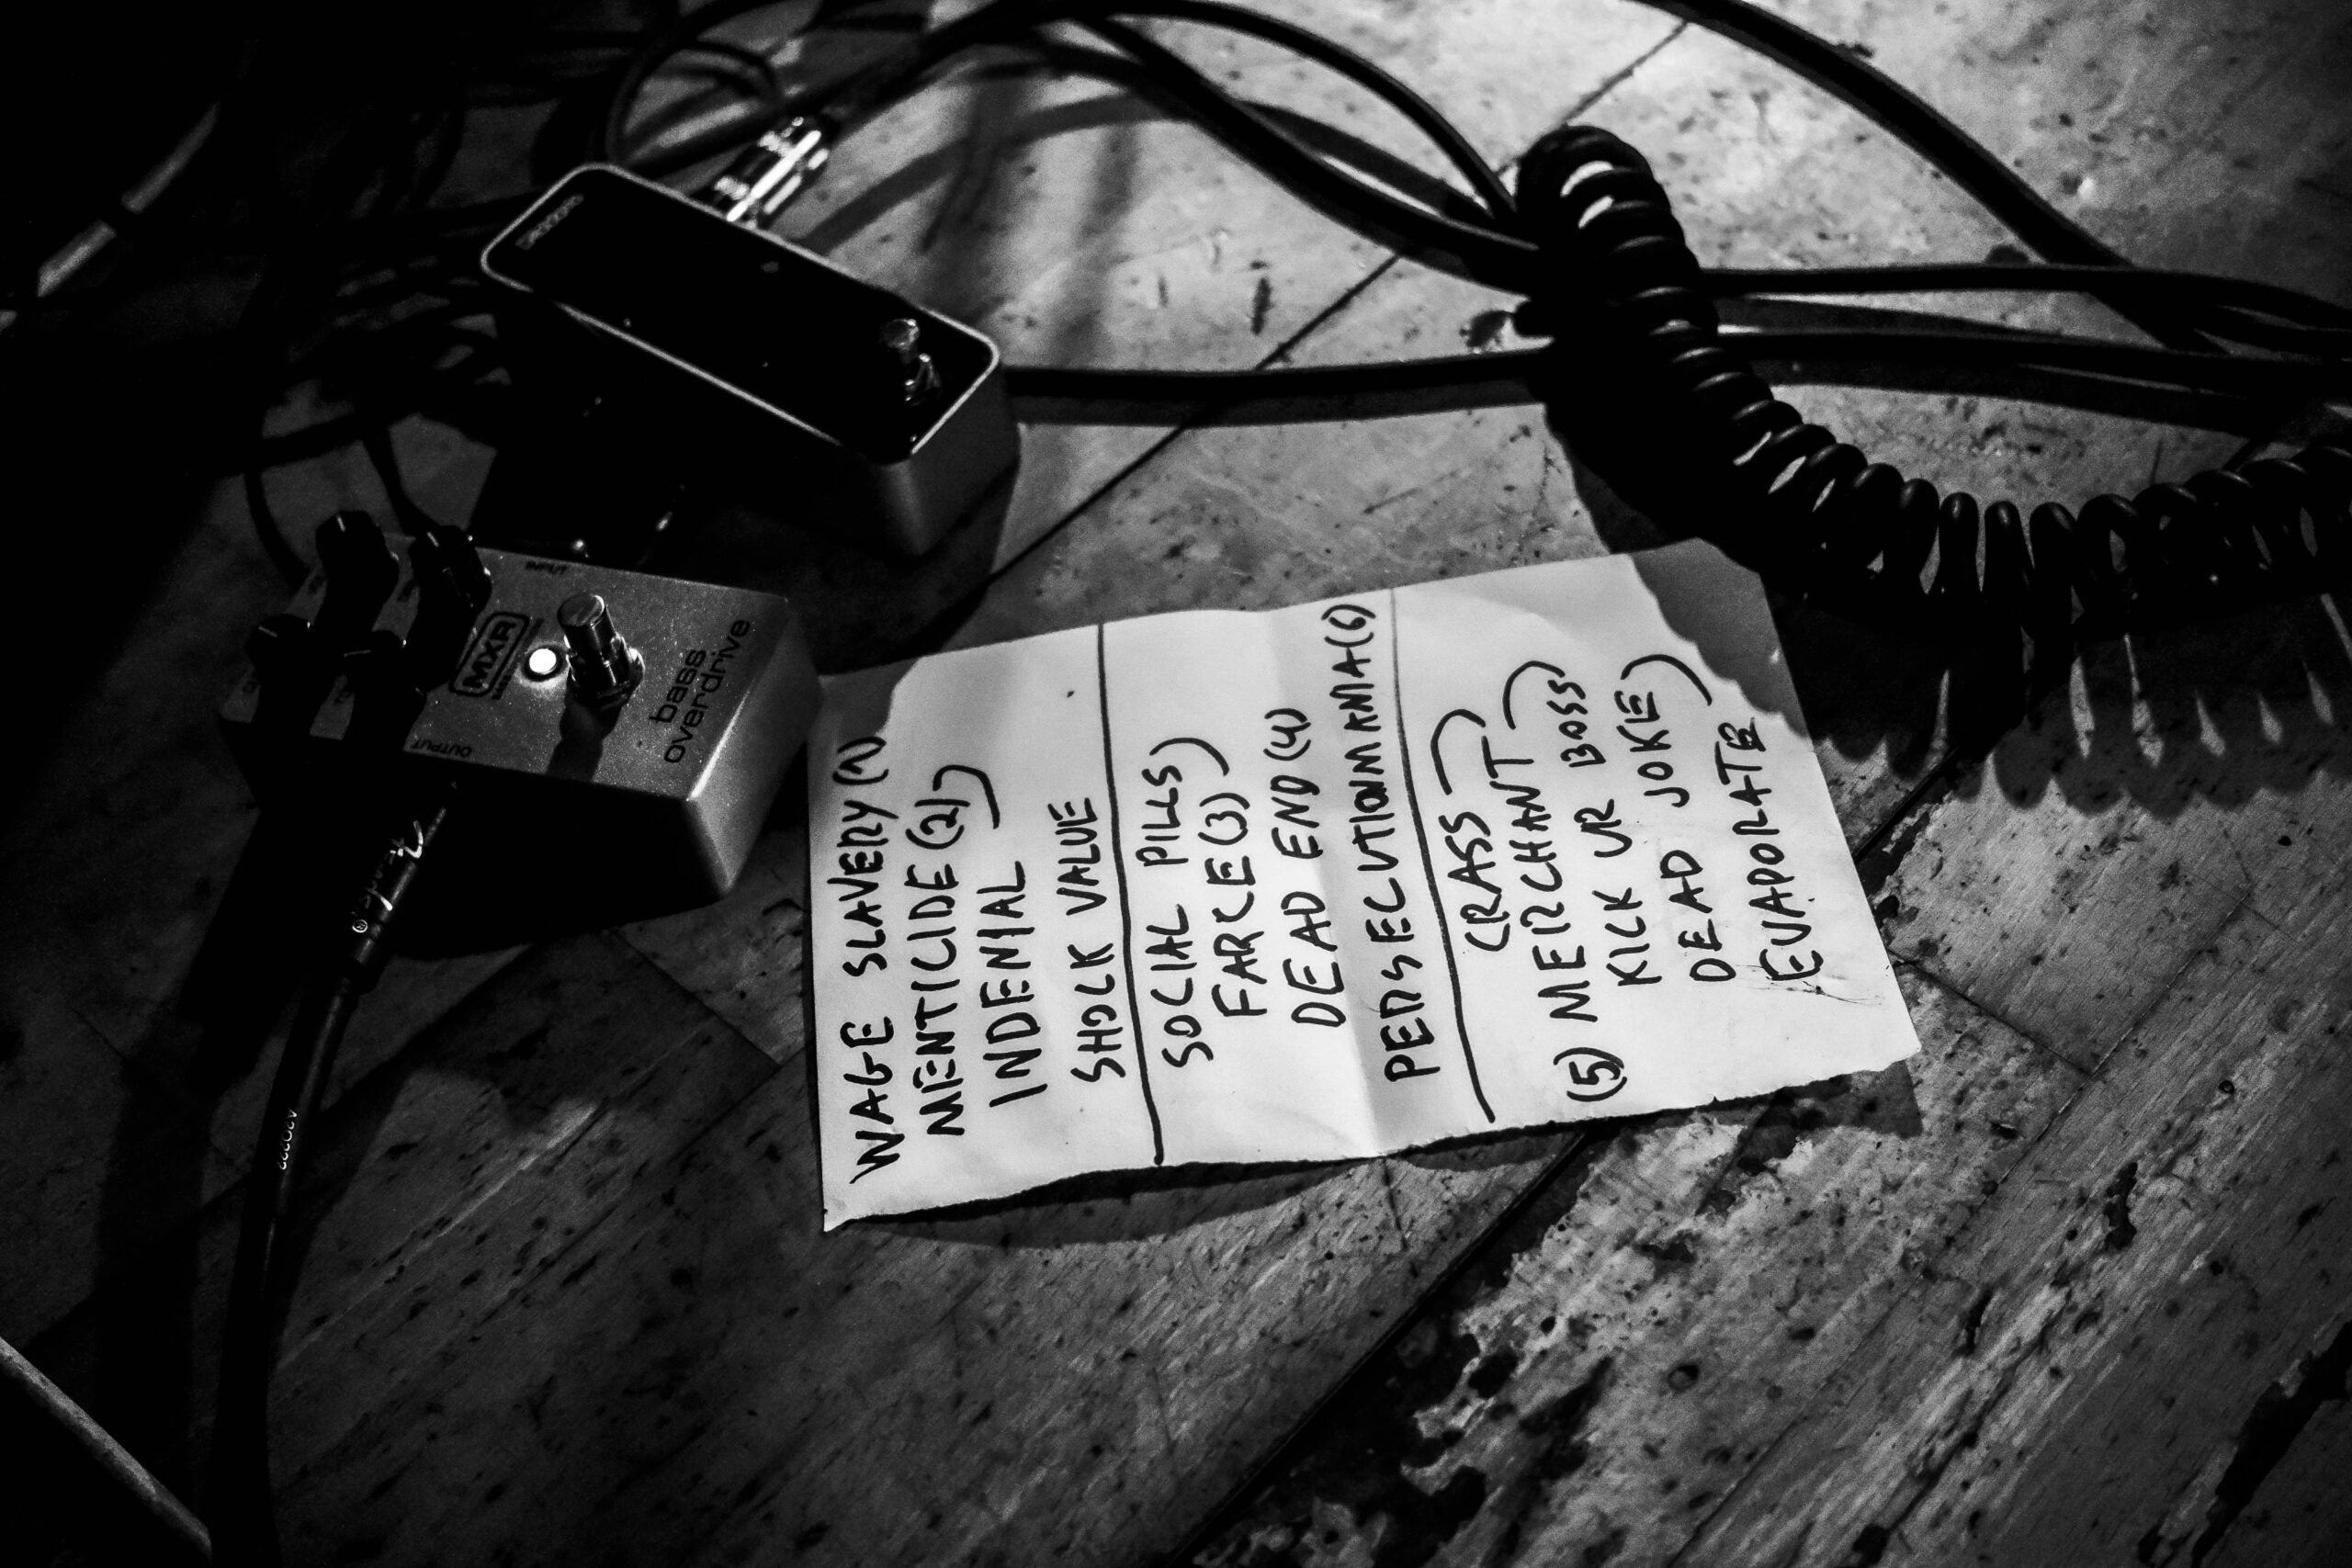 WAGE SLAVERY (1)
MENTICIDE (2)
INDENIAL
SHOCK VALUE
SOCIAL PILLS
FARCE (3)
DEAD END (4)
PERSECUTIONMANIA (6)
CRASS
(5) MERCHANT
KICK UR BOSS
DEAD JOKE
EVAPORATE
INPUT
MXR
bass
overdrive
OUTPUT
Fender